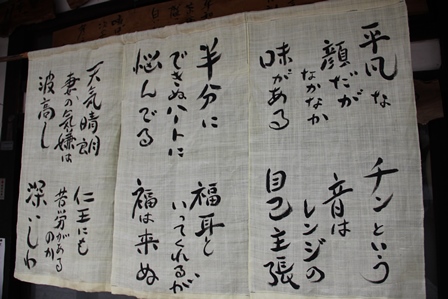 平凡な
顔だが
なかなか
味がある
チンという
音は
レンジの
自己主張
半分に
できぬハートに
悩んでる
福耳と
いってくれるが
福は来ぬ
天気晴朗
妻の気嫌は
波高し
仁王にも
苦労がある
のか
深いしわ